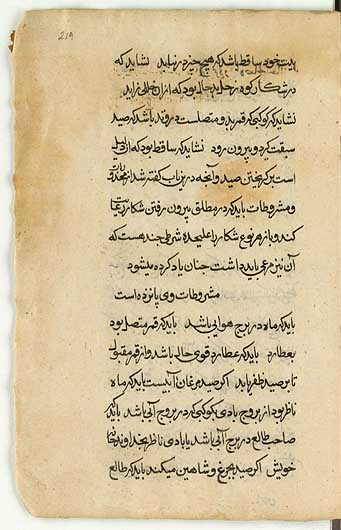 بیت خود ساقط باشد که هیچ چیز در نیابد نشاید که
در شکار بود زحل بد حالی بود که از آن خللی زاید
نشاید که کوکبی که قمر بدو متصلست دروند باشد که صید
سبقت کرد و بیرون رود نشاید که ساقط بود که آن دلیل
است بر گریختن صید و آنچه در این باب گفته شد از محذورات
و مشروطات باید که در مطلق بیرون رفتن شکار رعایت
کند و از هر نوع شکار را علیحده شرطی چند هست که
آن نیز مرعی باید داشت چنان یاد کرده میشود
مشروطات وی پانزده است
باید که ماه در برج هوایی باشد باید که قمر متصل بود
بعطارد باید که عطارد قوی حال باشد و از قمر مقبول
تا بر صید ظفر یابد اگر صید مرغان آبیست باید که ماه
ناظر بود از بروج بادی بکوکبی که در بروج آبی باشد باید که
صاحب طالع در برج آبی باشد یا بادی ناظر بخداوند خانه
خویش اگر صید بچرغ و شاهین میکند باید که طالع